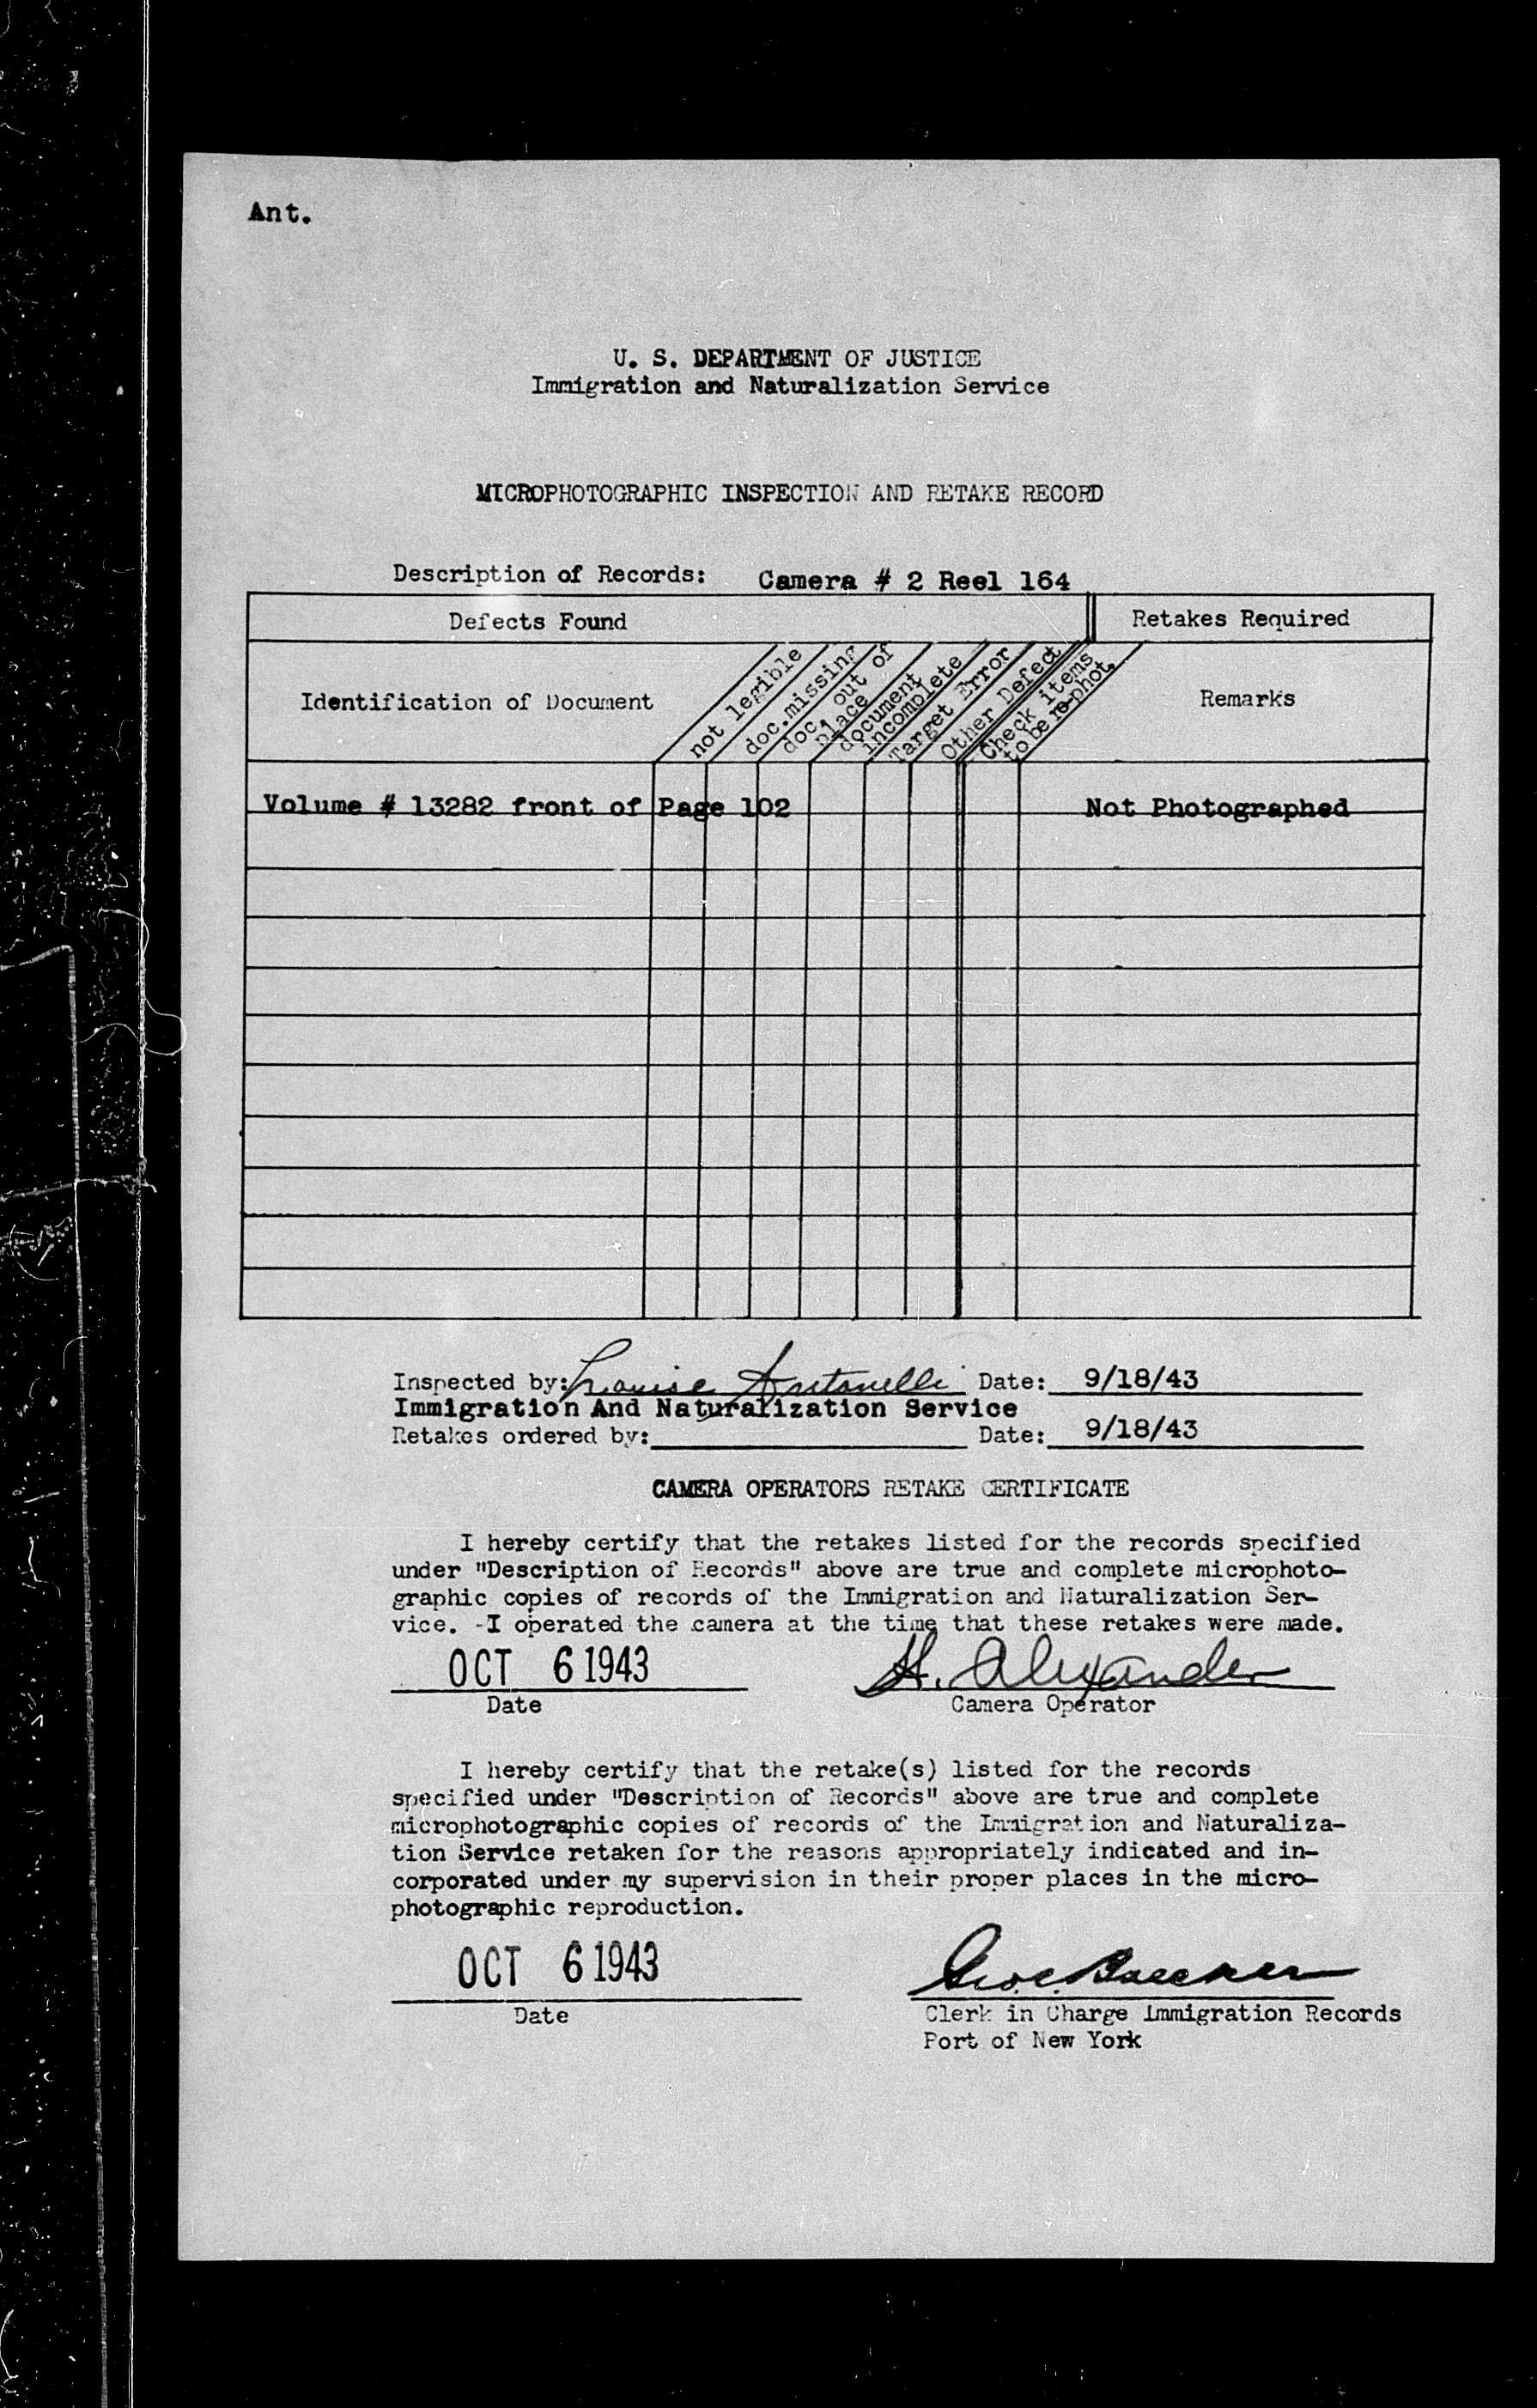 Ant.
U. S. DEPARTMENT OF JUSTICE
Immigration and Naturalization Service
MICROPHOTOGRAPHIC INSPECTION AND RETAKE RECORD
Description of Records: Camera # 2 Reel 164
Defects Found
Retakes Required
Identification of Document
not legible
doc.missing
doc. out of
place
document
incomplete
Target Error
Other Defect
Check items
to be re-phot.
Remarks
Volume # 13282 front of Page 102 Not Photographed
Inspected by: Louise Antonelli Date: 9/18/43
Immigration And Naturalization Service
Retakes ordered by: Date: 9/18/43
CAMERA OPERATORS RETAKE CERTIFICATE
I hereby certify that the retakes listed for the records specified
under "Description of Records" above are true and complete microphoto-
graphic copies of records of the Immigration and Naturalization Ser-
vice. -I operated the camera at the time that these retakes were made.
OCT 6 1943 H. Alexander
Date Camera Operator
I hereby certify that the retake(s) listed for the records
specified under "Description of Records" above are true and complete
microphotographic copies of records of the Immigration and Naturaliza-
tion Service retaken for the reasons appropriately indicated and in-
corporated under my supervision in their proper places in the micro-
photographic reproduction.
OCT 6 1943
Date
Clerk in Charge Immigration Records
Port of New York